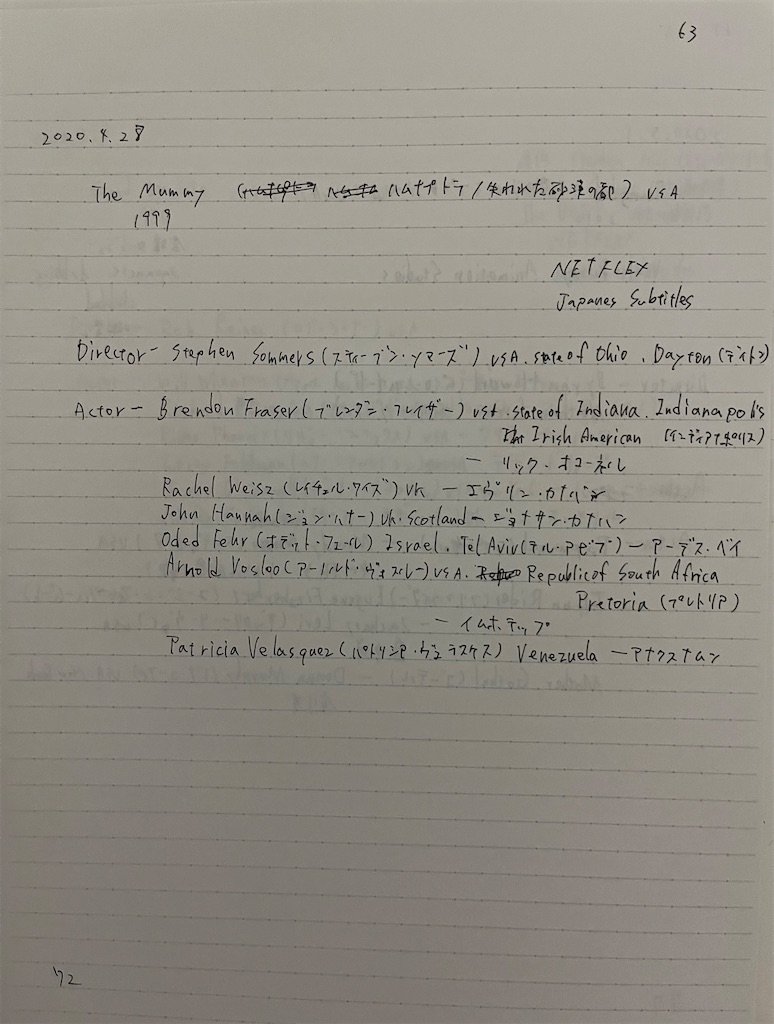 63
2020.4.28
The Mummy (ハムナプトラ/失われた砂漠の都) USA
1999
NETFLEX
Japanes Subtitles
Director - Stephen Sommers (スティーブン・ソマーズ) USA. state of Ohio. Dayton (デイトン)
Actor - Brendon Fraser (ブレンダン・フレイザー) USA. state of Indiana. Indianapolis
Irish American (インディアナポリス)
- リック・オコーネル
Rachel Weisz (レイチェル・ワイズ) UK - エヴリン・カナハン
John Hannah (ジョン・ハナー) UK. Scotland - ジョナサン・カナハン
Oded Fehr (オデット・フェール) Israel. Tel Aviv (テル・アビブ) - アーデス・ベイ
Arnold Vosloo (アーノルド・ヴォスルー) USA. Republic of South Africa
Pretoria (プレトリア)
- イムホテップ
Patricia Velasquez (パトリシア・ヴェラスケス) Venezuela - アナクスナムン